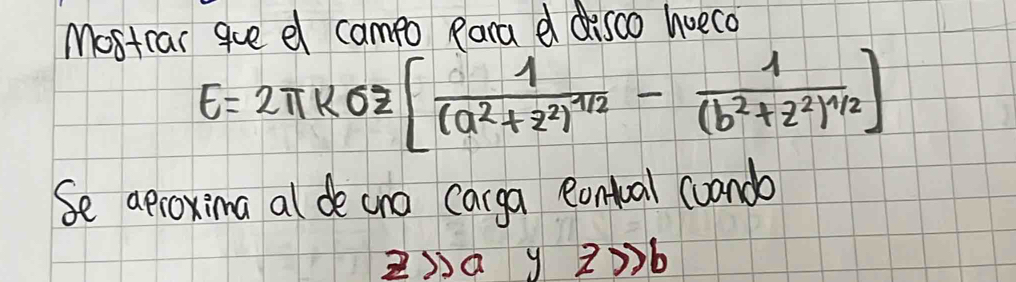 Mostrar que el campo para el disco hueco
E = 2πKσz [ 1/(a²+z²)^1/2 - 1/(b²+z²)^1/2 ]
Se aproxima al de una carga pontual cuando
z >> a y z >> b